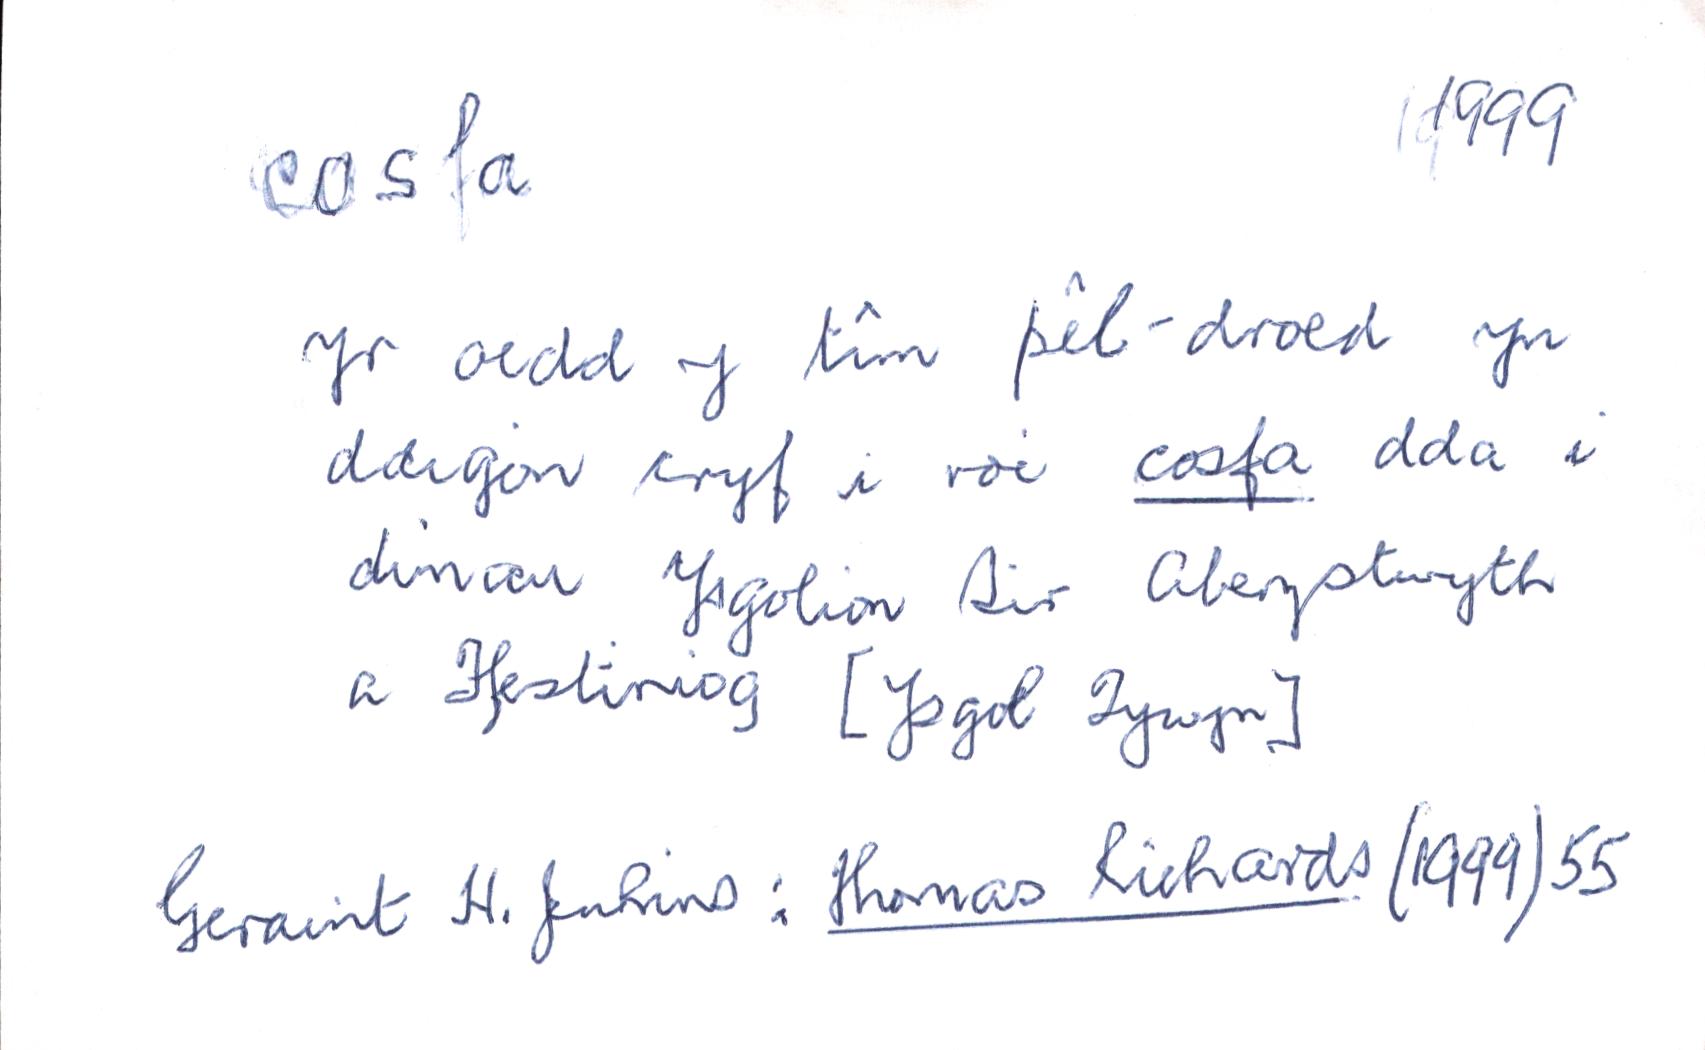 cosfa 1999
Yr oedd y tîm pêl-droed yn
ddigon cryf i roi cosfa dda i
dimau Ysgolion Sir Aberystwyth
a Ffestiniog [Ysgol Tywyn]
Geraint H. Jenkins : Thomas Richards (1999) 55